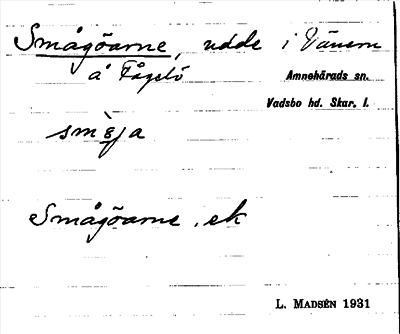 Smågöarne, udde i Vänern
å Fågelö
Amnehärads sn.
Vadsbo hd. Skar. l.
smè̱ja
Smågöarne. ek
L. MADSÉN 1931